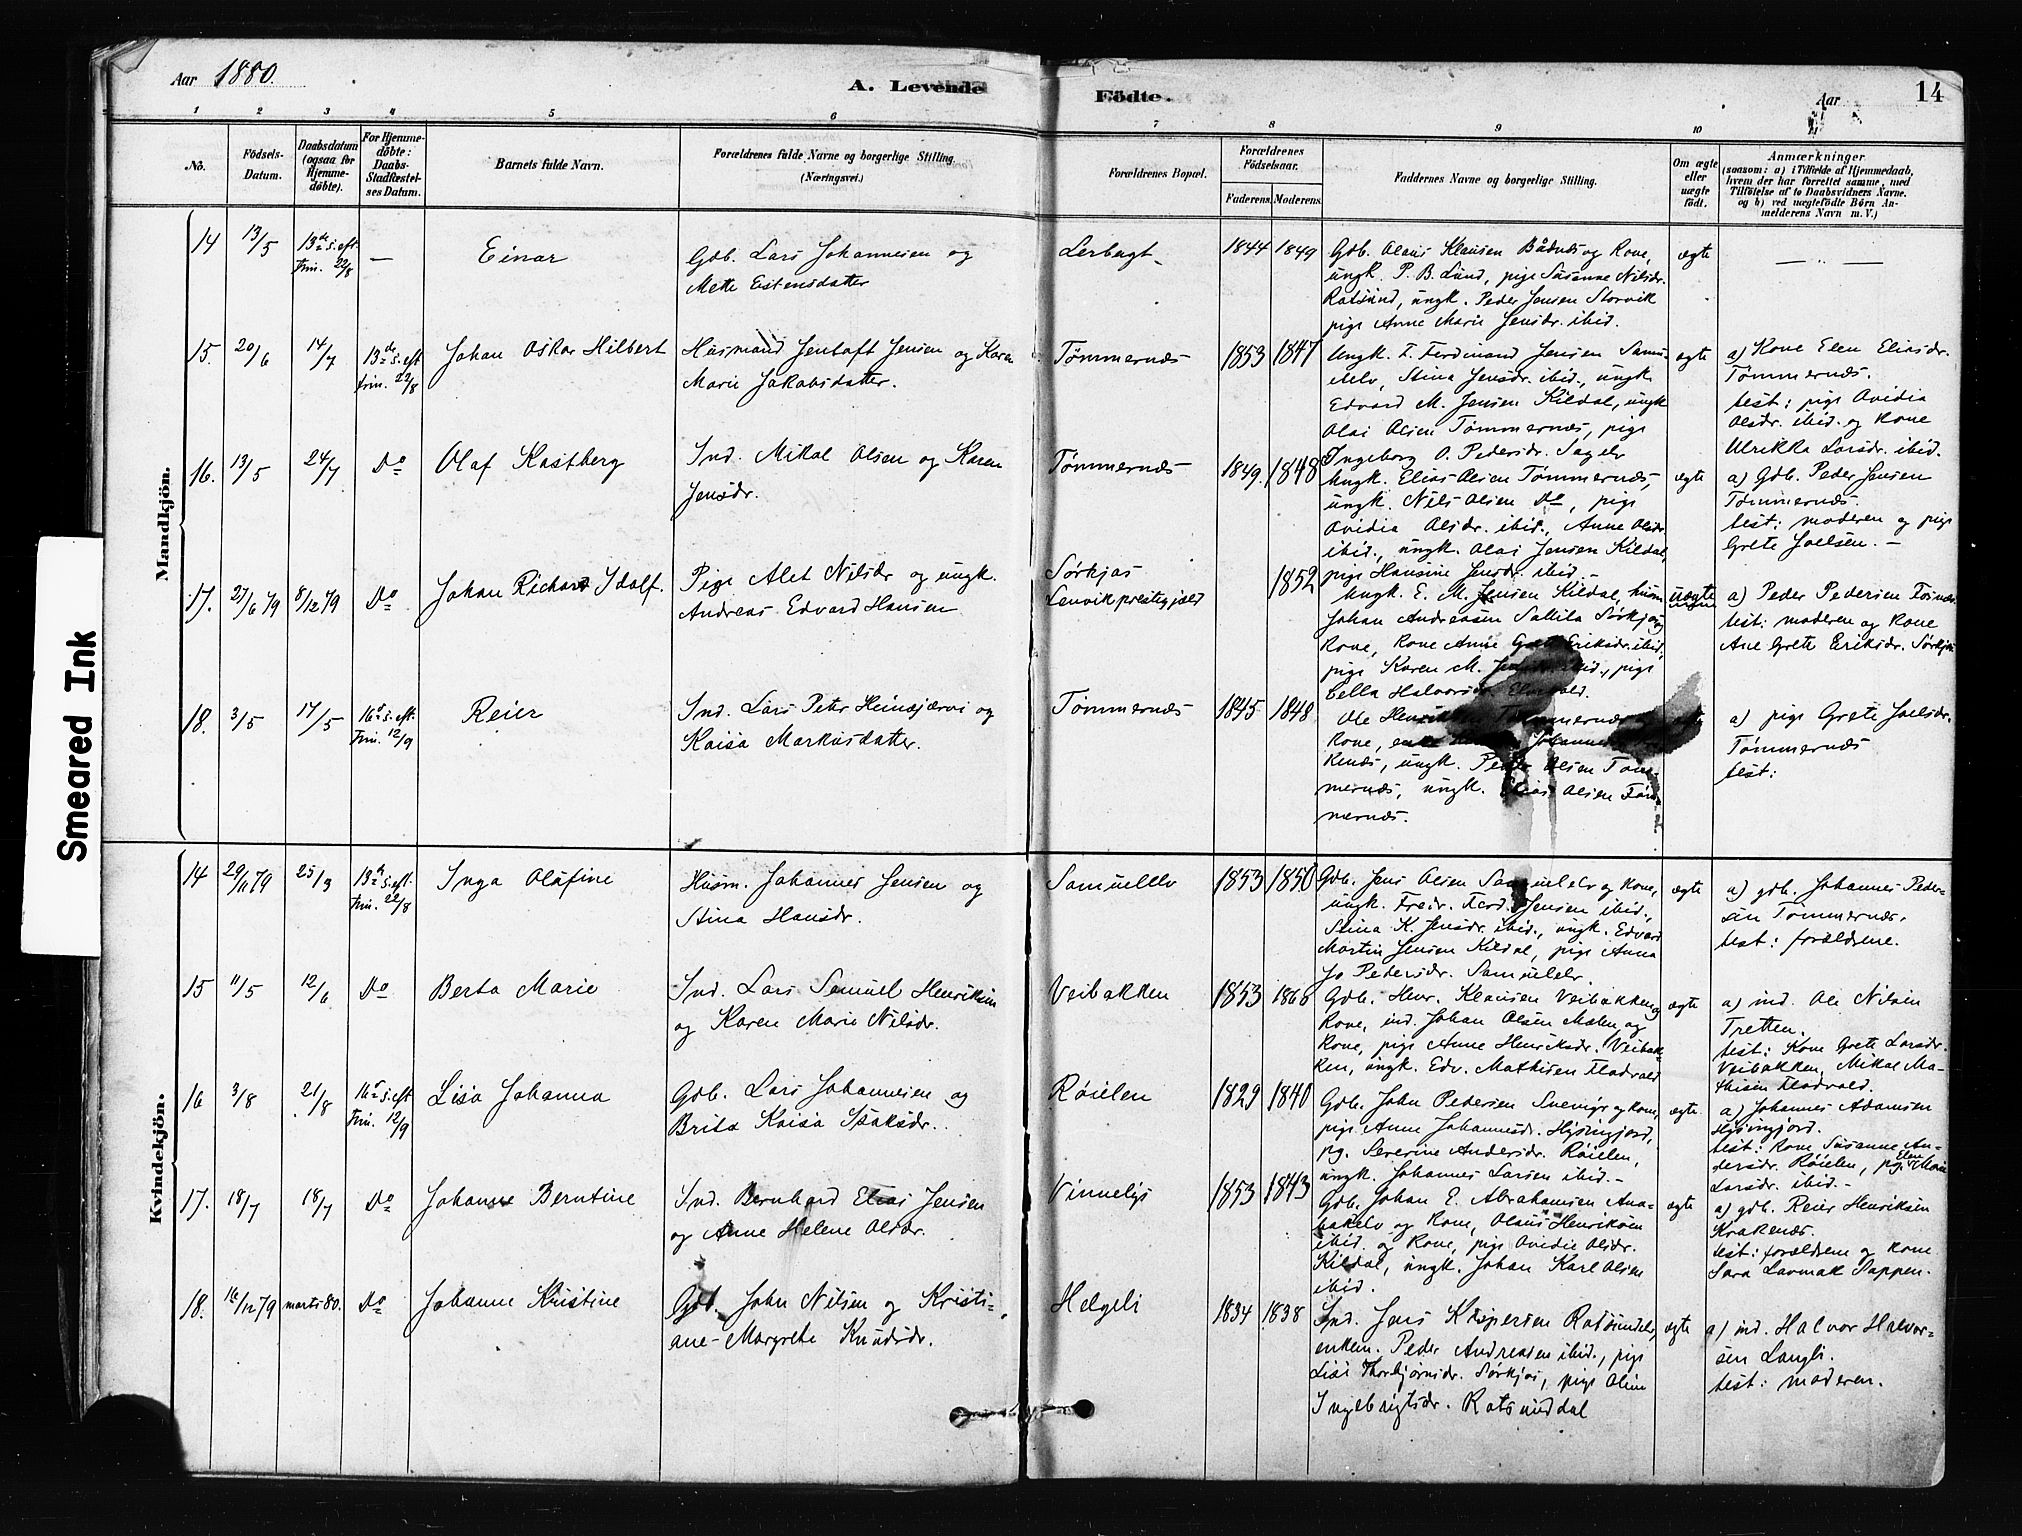 Aar 1880.
A. Levende
Födte.
Aar
14
1 2 3 4 5 6 7 8 9 10
No.
Födsels-
Datum.
Daabsdatum
(ogsaa for
Hjemme-
döbte).
For Hjemme-
döbte:
Daabs-
Stadfæstel-
ses Datum.
Barnets fulde Navn.
Forældrenes fulde Navne og borgerlige Stilling
(Næringsvei.)
Forældrenes Bopæl.
Forældrenes
Födselsaar.
Faderens. Moderens.
Faddernes Navne og borgerlige Stilling.
Om ægte
eller
uægte
födt.
Anmærkninger
(saasom: a) i Tilfælde af Hjemmedaab,
hvem der har forrettet samme, med
Tilföielse af to Daabsvidners Navne.
og b) ved uægtefödte Börn An-
melderens Navn m. V.)
Smeared Ink
Mandkjön.
14 13/5 13de S. eft. Trin. 22/8 — Einar
Gdb. Lars Johannesen og
Mette Estensdatter
Lerbugt
1844 1849
Gdb. Olaus Klausen Bådnes og Kone,
ungk. P. B. Lund, pige Susanne Nilsdr.
Rotsund, ungk. Peder Jensen Storvik
pige Anne Marie Jensdr. ibid.
ægte
— " —
15. 20/6 14/7 13de S. eft. Trin. 22/8 Johan Oskar Hilbert
Husmand Jentoft Jensen og Karen
Marie Jakobsdatter.
Tømmernæs
1853 1847
Ungk. F. Ferdinand Jensen Samu-
elelv, Stina Jensdr. ibid., ungk.
Edvard M. Jensen Kildal, ungk
Olai Olsen Tømmernæs, pige
Ingeborg O. Pedersdr. Sagelv
ægte
a) Kone Elen Eliasdr.
Tømmernæs.
test: pige Ovidia
Olsdr. ibid. og Kone
Ulrikka Larsdr. ibid.
16. 13/5 24/7 Do Olaf Kastberg
Ind. Mikal Olsen og Karen
Jensdr.
Tømmernæs
1849. 1848
Ungk. Elias Olsen Tømmernæs,
ungk. Nils Olsen Do, pige
Ovidia Olsdr. ibid., Anne Olsdr
ibid., ungk. Olai Jensen Kildal,
pige Hansine Jensdr. ibid.
ægte
a) Gdb. Peder Jensen
Tømmernæs.
test: moderen og pige
Grete Joelsen. —
17. 27/6 79 8/12 79 Do Johan Richard Idolf.
Pige Alet Nilsdr og ungk.
Andreas Edvard Hansen
Sørkjos
Lenvik prestegjæld
1852
Ungk. E. M. Jensen Kildal, husm
Johan Andreasen Sallila Sørkjos og
Kone, Kone Anne Eriksdr. ibid.,
pige Karen M. ibid., pige
Cella Halvorsdr.
uægte
a) Peder Pedersen Fosnæs
test: moderen og Kone
Ane Grete Eriksdr. Sørkjos
18. 3/5 17/5 16de S. eft. Trin. 12/9 Reier
Ind. Lars Peter Heinsjærvi og
Kaisa Markusdatter.
Tømmernæs
1845 1848
Ole Tømmernæs
Kone, enke
kenæs, ungk. Peder Olsen Tøm-
mernæs, ungk. Elias Olsen Tøm-
mernæs.
a) pige Grete Joelsdr.
Tømmernæs
test:
Kvindekjön.
14 29/11 79 25/3 13de S. eft. Trin. 22/8 Inga Olufine
Husm. Johannes Jensen og
Stina Hansdr.
Samuelelv
1853 1850
Gdb. Jens Olsen Samuelelv og Kone,
ungk. Fredr. Ferd. Jensen ibid.,
Stina K. Jensdr. ibid., ungk. Edvard
Martin Jensen Kildal, pige Anna
Jo Pedersdr. Samuelelv.
ægte
a) gdb. Johannes Peder-
sen Tømmernæs.
test: forældrene.
15 11/5 12/6 Do Berta Marie
Ind. Lars Samuel Henriksen
og Karen Marie Nilsdr.
Veibakken
1853 1866
Gdb. Henr. Klausen Veibakken og
Kone, ind. Johan Olsen Malen og
Kone, pige Anne Henriksdr. Veibak-
ken, ungk. Edv. Mathisen Fladvold
ægte
a) ind. Ole Nilsen
Tretten.
test: Kone Grete Larsdr.
Veibakken, Mikal Ma-
thisen Fladvold.
16 3/8 21/8 16de S. eft. Trin. 12/9 Lisa Johanna
Gdb. Lars Johannesen og
Brita Kaisa Isaksdr.
Røielen
1829 1840
Gdb. John Pedersen og Kone,
pige Anne Johannesdr. Hysingjord,
pg. Severine Andersdr. Røielen,
ungk. Johannes Larsen ibid. —
ægte
a) Johannes Adamsen
Hysingjord.
test: Kone Susanne An-
dersdr. Røielen, pg. Elen Marie
Larsdr. ibid. —
17. 18/7 18/7 Do Johanne Berntine
Ind. Bernhard Elias Jensen
og Anne Helene Olsdr.
Vinnelys
1853 1843
Gdb. Johan E. Abrahamsen Ana-
bakelv og Kone, Olaus Henriksen
ibid. og Kone, pige Ovidie Olsdr.
Kildal, ungk. Johan Karl Olsen
ibid.
ægte
a) gdb. Reier Henriksen
Krakenæs.
test: forældrene og Kone
Sara Lavmak Pappen.
18. 16/12 79 marts 80. Do Johanne Kristine
Gdb. John Nilsen og Kristi-
ane Margrete Knudsdr.
Helgeli
1834 1838
Ind. Jens Kaspersen Rotsundelv,
enkem. Peder Andreasen ibid., pige
Lisa Thorbjørnsdr. Sørkjos, pige Oline
Ingebrigtsdr. Rotsunddal
ægte
a) ind. Halvor Halvor-
sen Langli.
test: moderen.